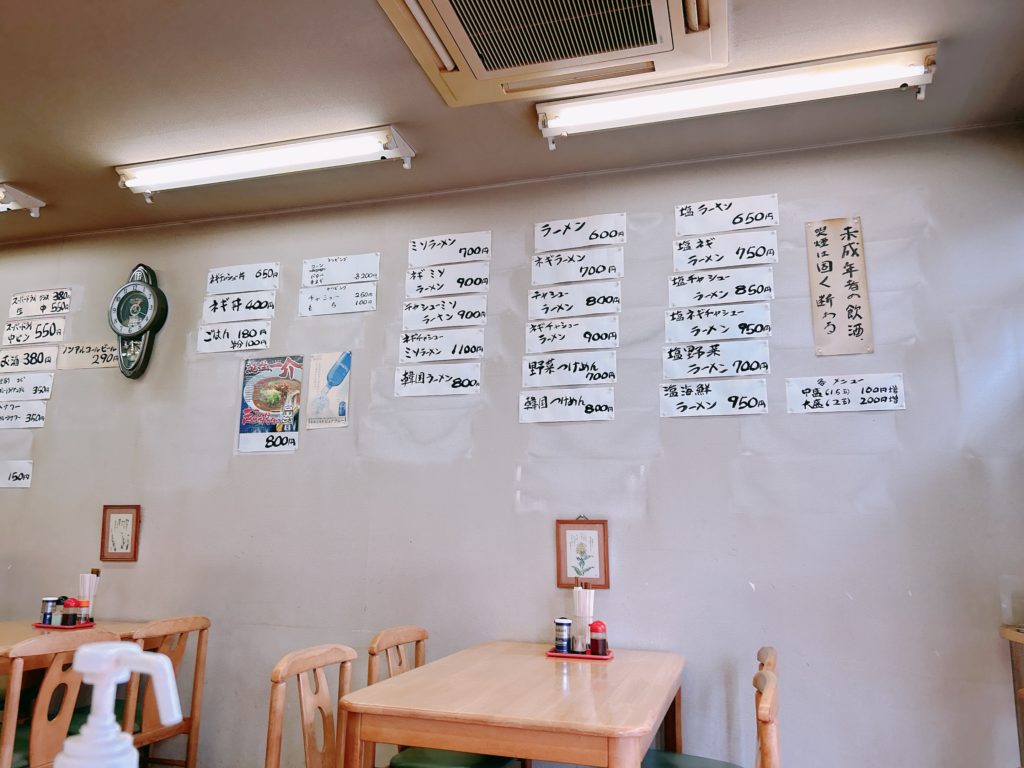 未成年者の飲酒
喫煙は固く断わる
塩ラーメン 650円
塩ネギ
ラーメン 750円
塩チャシュー
ラーメン 850円
塩ネギチャシュー
ラーメン 950円
塩野菜
ラーメン 700円
塩海鮮
ラーメン 950円
各メニュー
中盛(1.5玉) 100円増
大盛(2玉) 200円増
ラーメン 600円
ネギラーメン
700円
チャシュー
ラーメン 800円
ネギチャシュー
ラーメン 900円
野菜つけめん
700円
韓国つけめん
800円
ミソラーメン
700円
ネギミソ
ラーメン 900円
チャシューミソ
ラーメン 900円
ネギチャシュー
ミソラーメン 1100円
韓国ラーメン 800円
トッピング
コーン
各200円
トッピング
チャシュー 250円
もち 100円
ネギチャシュー丼 650円
ネギ丼 400円
ごはん 180円
半分 100円
800円
スーパードライ グラス 380円
中 550円
スーパードライ
中ビン 550円
お酒 380円
ノンアルコールビール
290円
350円
350円
150円